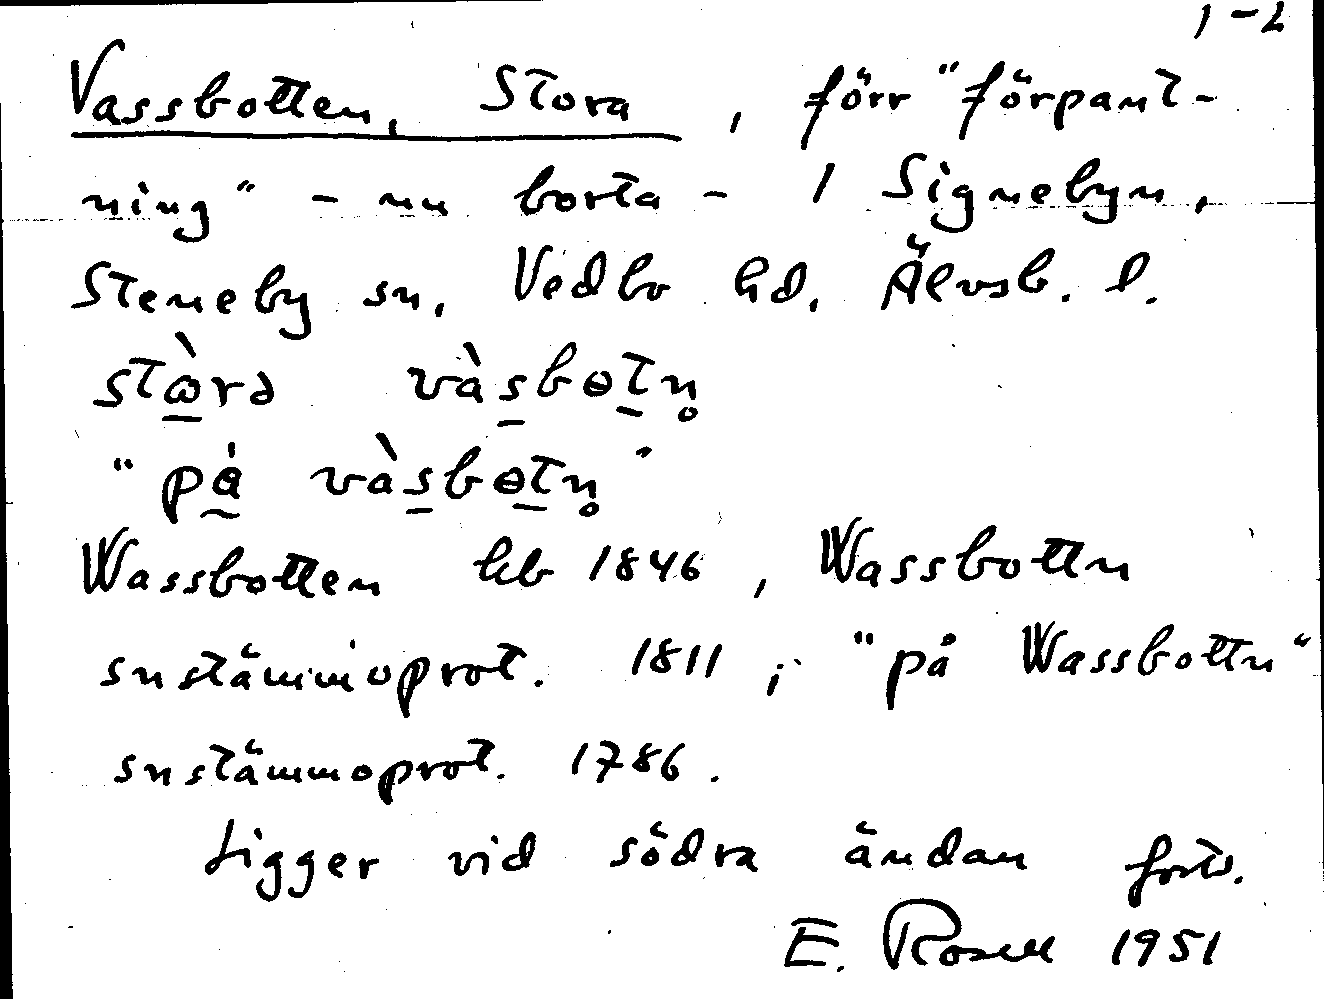 1-2
Vassbotten, Stora, förr "förpant-
ning" - nu borta - / Signebyn,
Steneby sn, Vedbo hd, Älvsb. l.
stὼrə vàsbɵtn̥
"på̀ vàsbɵtn̥"
Wassbotten hb 1846, Wassbottn
snstämmoprot. 1811; "på Wassbottn"
snstämmoprot. 1786.
Ligger vid södra ändan forts.
E. Rosell 1951